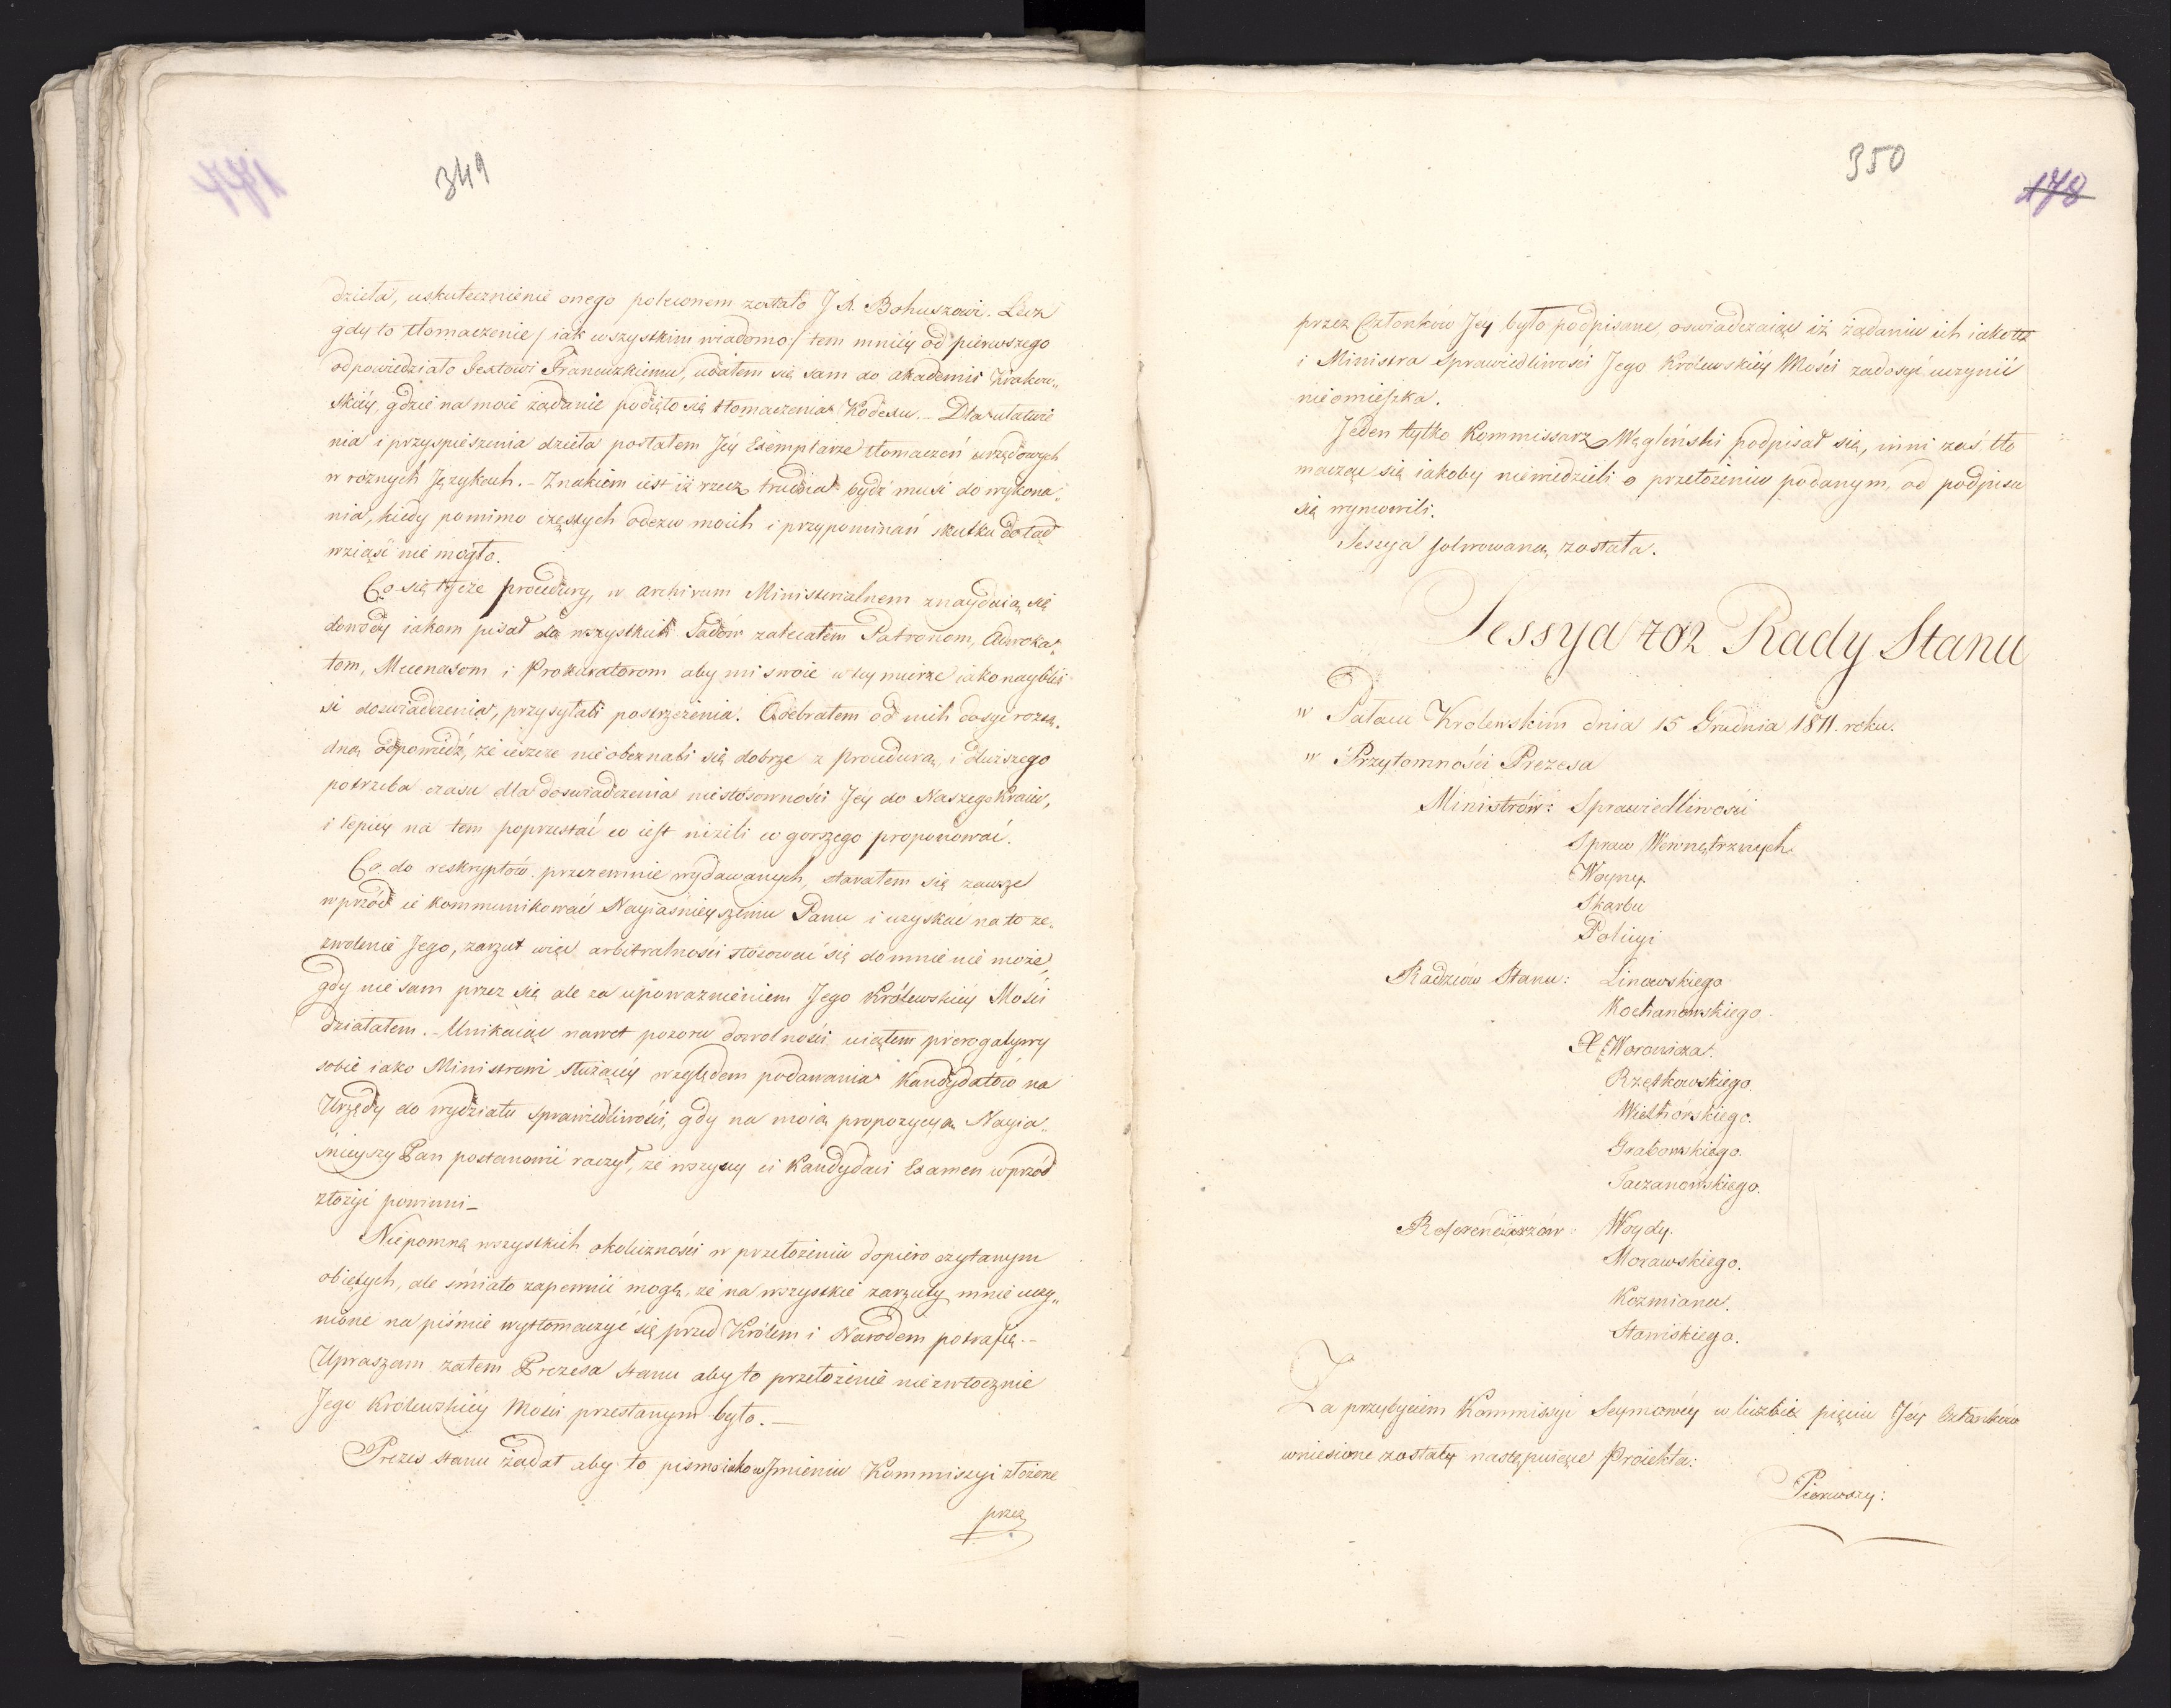 349
dzieła, uskutecznienie onego poleconem zostało J. X. Bohuszowi. Lecz
gdy to tłomaczenie / iak wszystkim wiadomo / tem mniéy od pierwszego
odpowiedziało Textowi Francuzkiemu, udałem się sam do akademii Krakow„
skiéy, gdzie na moie żądanie podięto się tłomaczenia Kodexu. – Dla ułatwie
nia i przyspieszenia dzieła posłałem Jéy Exemplarze tłomaczeń urzędowych
w roznych Językach. – Znakiem iest iż rzecz trudna bydź musi do wykona„
nia, kiedy pomimo częstych odezw moich i przypominań skutku dotąd
wziąść nie mogło.
Co się tycze procedury, w archivum Ministerialnem znayduią się
dowody iakom pisał do wszystkich Sądów zalecałem Patronom, Adwoka„
tom, Mecenasom i Prokuratorom aby mi swoie w tey mierze iako nayblis
si doswiadczenia, przysyłali postrzeżenia. Odebrałem od nich dosyć rozsą„
dną odpowiedź, że ieszcze nie obeznali się dobrze z procedurą, i dłuższego
potrzeba czasu dla doswiadczenia niestosowności Jéy do Naszego Kraiu,
i lepiéy na tem poprzestać co iest niżeli co gorszego proponować.
Co do reskryptów przezemnie wydawanych, starałem się zawsze
wprzód ie kommunikować Nayiaśnieyszemu Panu i uzyskać na to ze„
zwolenie Jego, zarzut więc arbitralności stosować się do mnie nie może,
gdy nie sam przez się ale za upoważnieniem Jego Królewskiéy Mości
działałem. – Unikaiąc nawet pozoru dowolności uiąłem prerogatywy
sobie iako Ministrowi służącéy względem podawania Kandydatów na
Urzędy do wydziału Sprawiedliwości, gdy na moią propozycyą Nayia„
śnieyszy Pan postanowić raczył, że wszyscy ci Kandydaci Examen wprzód
złożyć powinni –
Niepomnę wszystkich okoliczności w przełożeniu dopiero czytanym
obiętych, ale śmiało zapewnić mogę, że na wszystkie zarzuty mnie uczy„
nione na piśmie wytłomaczyć się przed Królem i Narodem potrafię. –
Upraszam zatem Prezesa Stanu aby to przełożenie niezwłocznie
Jego Królewskiéy Mości przesłanym było. –
Prezes Stanu żądał aby to pismo iako w Jmieniu Kommissyi złożone
przez
350
178
przez Członków Jey było podpisane, oswiadczaiąc iż żądaniu ich iako też
i Ministra Sprawiedliwości Jego Królewskiéy Mości zadosyć uczynić
nieomieszka.
Jeden tylko Kommissarz Węgleński podpisał się, inni zaś tło
macząc się iakoby niewidzieli o przełożeniu podanym, od podpisu
się wymowili.
Sessya solwowaną została.
Sessya 702 Rady Stanu
w Pałacu Królewskim dnia 15 Grudnia 1811. roku.
w Przytomności Prezesa
Ministrów: Sprawiedliwości
Spraw Wewnętrznych
Woyny
Skarbu
Policyi
Radzców Stanu: Linowskiego
Kochanowskiego
X. Woronicza.
Rzętkowskiego.
Wielhórskiego.
Grabowskiego.
Taczanowskiego.
Referendarzów: Woydy.
Morawskiego.
Kozmiana.
Stawiskiego.
Za przybyciem Kommissyi Seymowéy w liczbie pięciu Jéy Członków
wniesione zostały następuiące Proiekta:
Pierwszy: